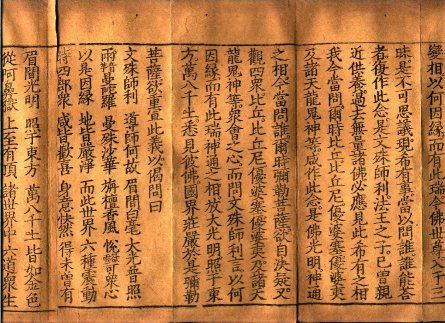 變相以何因緣而有此瑞今佛世尊入于三
昧是不可思議現希有事當以問誰誰能答
者復作此念是文殊師利法王之子已曾親
近供養過去無量諸佛必應見此希有之相
我今當問爾時比丘比丘尼優婆塞優婆夷
及諸天龍鬼神等咸作此念是佛光明神通
之相今當問誰爾時彌勒菩薩欲自決疑又
觀四衆比丘比丘尼優婆塞優婆夷及諸天
龍鬼神等衆會之心而問文殊師利言以何
因緣而有此瑞神通之相放大光明照于東
方萬八千土悉見彼佛國界莊嚴於是彌勒
菩薩欲重宣此義以偈問曰
文殊師利 導師何故 眉間白毫 大光普照
雨曼陀羅 曼殊沙華 栴檀香風 悅可衆心
以是因緣 地皆嚴淨 而此世界 六種震動
時四部衆 咸皆歡喜 身意快然 得未曾有
眉間光明 照于東方 萬八千土 皆如金色
從阿鼻獄 上至有頂 諸世界中 六道衆生